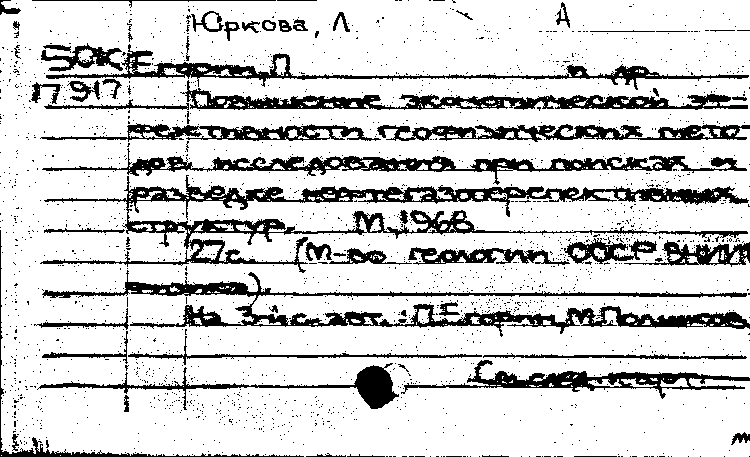 Юркова, Л А
50К Егорин, П и др.
17917 Повышение экономической эф-
фективности геофизических мето
дов исследования при поисках и
разведке нефтегазоперспективных
структур. М., 1968
27с. (М-во геологии СССР. ВНИИ
На 3-й с. авт.: П. Егорин, М. Поляков,
См. след. карт.